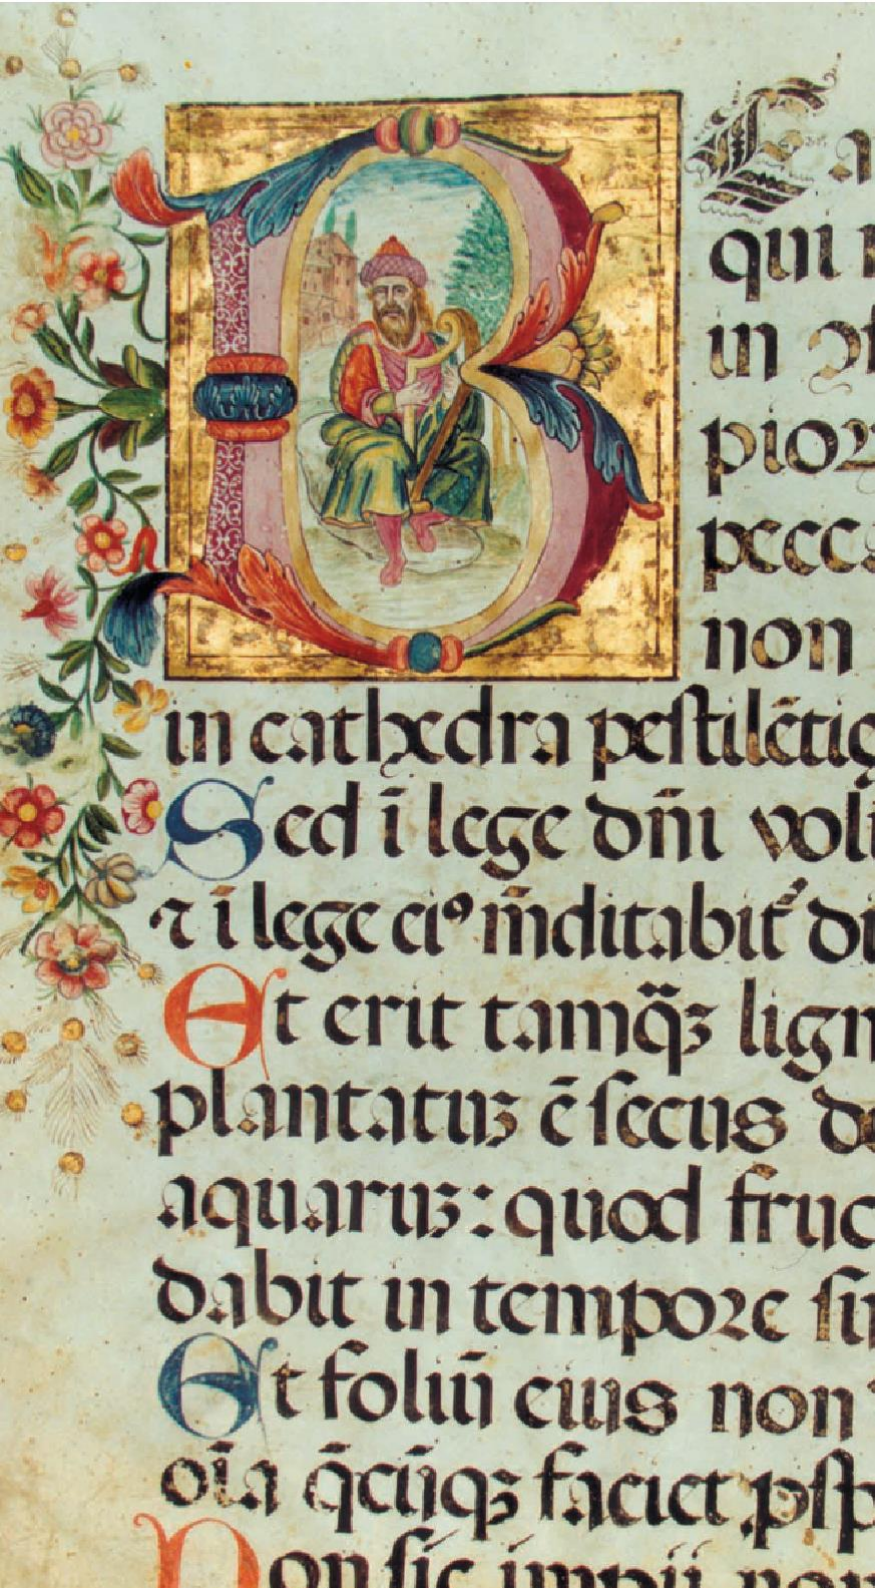 B Ea
qui
in ꝯſ
pioꝝ
pecca
non
in cathedra peſtilētię
Sed ī lege dn̄i volu
⁊ ī lege eiꝰ m̄ditabit᷑ di
Et erit tamq̄ꝫ lign
plantatuꝫ ē ſecus de
aquaruꝫ: quod fruc
dabit in tempoꝛe ſu
Et foliū eius non
oīa q̄cūqꝫ faciet ꝓſp
Non ſic impii non